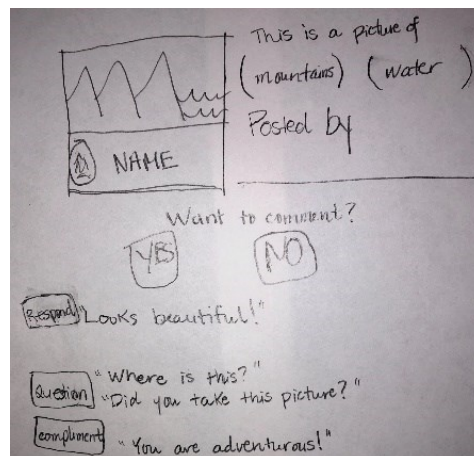 This is a picture of
(mountains) (water
Posted by
NAME
Want to comment?
YES NO
Respond "Looks beautiful!"
"Where is this?"
Question "Did you take this picture?"
Compliment "You are adventurous!"